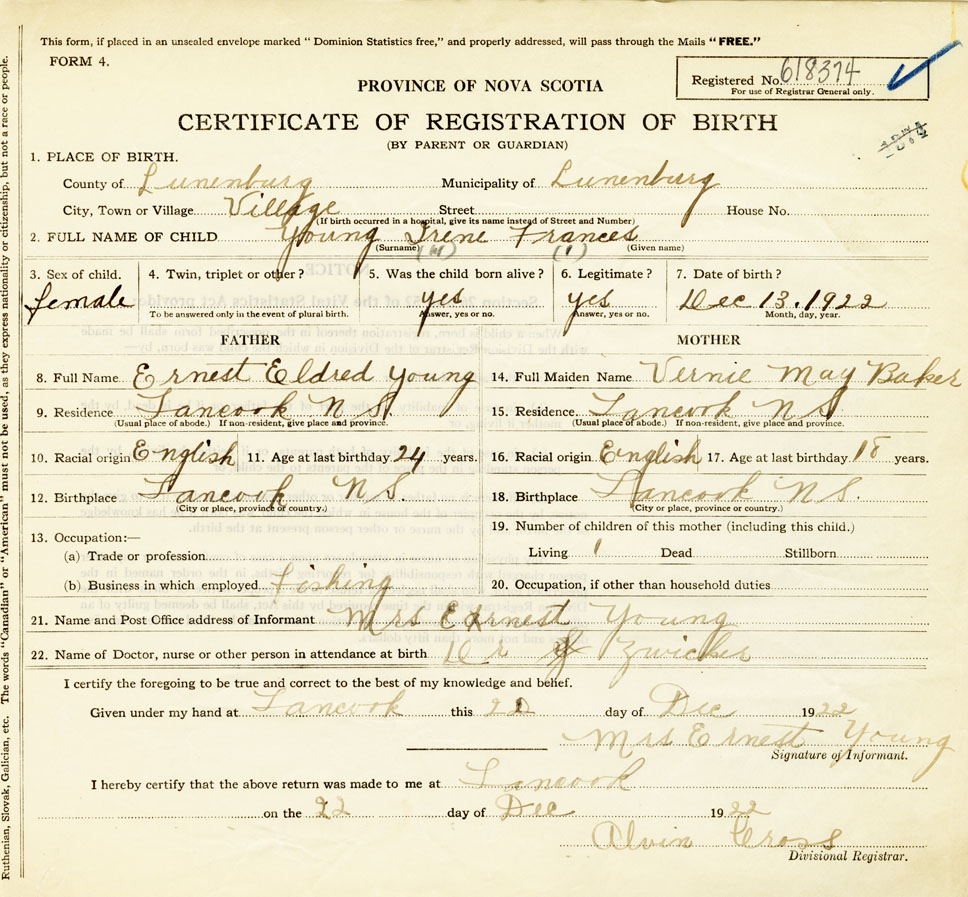 This form, if placed in an unsealed envelope marked “Dominion Statistics free,” and properly addressed, will pass through the Mails “FREE.”
FORM 4.
Registered No. 618374
For use of Registrar General only.
PROVINCE OF NOVA SCOTIA
CERTIFICATE OF REGISTRATION OF BIRTH
(BY PARENT OR GUARDIAN)
1. PLACE OF BIRTH.
County of Lunenburg Municipality of Lunenburg
City, Town or Village Village Street House No.
(If birth occurred in a hospital, give its name instead of Street and Number)
2. FULL NAME OF CHILD Young Irene Frances
(Surname) (Given name)
3. Sex of child. 4. Twin, triplet or other? 5. Was the child born alive? 6. Legitimate? 7. Date of birth?
female yes yes Dec 13. 1922
To be answered only in the event of plural birth. Answer, yes or no. Answer, yes or no. Month, day, year.
FATHER MOTHER
8. Full Name Ernest Eldred Young 14. Full Maiden Name Vernie May Baker
9. Residence Tancook N S. 15. Residence. Tancook N S
(Usual place of abode.) If non-resident, give place and province. (Usual place of abode.) If non-resident, give place and province.
10. Racial origin English 11. Age at last birthday 24 years. 16. Racial origin English 17. Age at last birthday 18 years.
12. Birthplace Tancook N S. 18. Birthplace Tancook N S.
(City or place, province or country.) (City or place, province or country.)
13. Occupation:— 19. Number of children of this mother (including this child.)
(a) Trade or profession Living 1 Dead Stillborn
(b) Business in which employed Fishing 20. Occupation, if other than household duties
21. Name and Post Office address of Informant Mrs Ernest Young
22. Name of Doctor, nurse or other person in attendance at birth Dr Zwicker
I certify the foregoing to be true and correct to the best of my knowledge and belief.
Given under my hand at Tancook this 22 day of Dec 1922
Mrs Ernest Young
Signature of Informant.
I hereby certify that the above return was made to me at Tancook
on the 22 day of Dec 1922
Alvin Cross
Divisional Registrar.
Ruthenian, Slovak, Galician, etc. The words “Canadian” or “American” must not be used, as they express nationality or citizenship, but not a race or people.